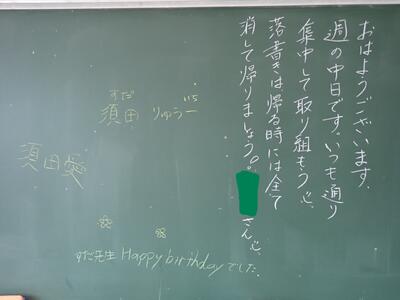 おはようございます。
週の中日です。いつも通り
集中して取り組もう心。
落書きは帰る時には全て
消して帰りましょう。
さん心。
すだ いち
須田 りゅう一
須田愛
すだ先生 Happy birthdayでした。